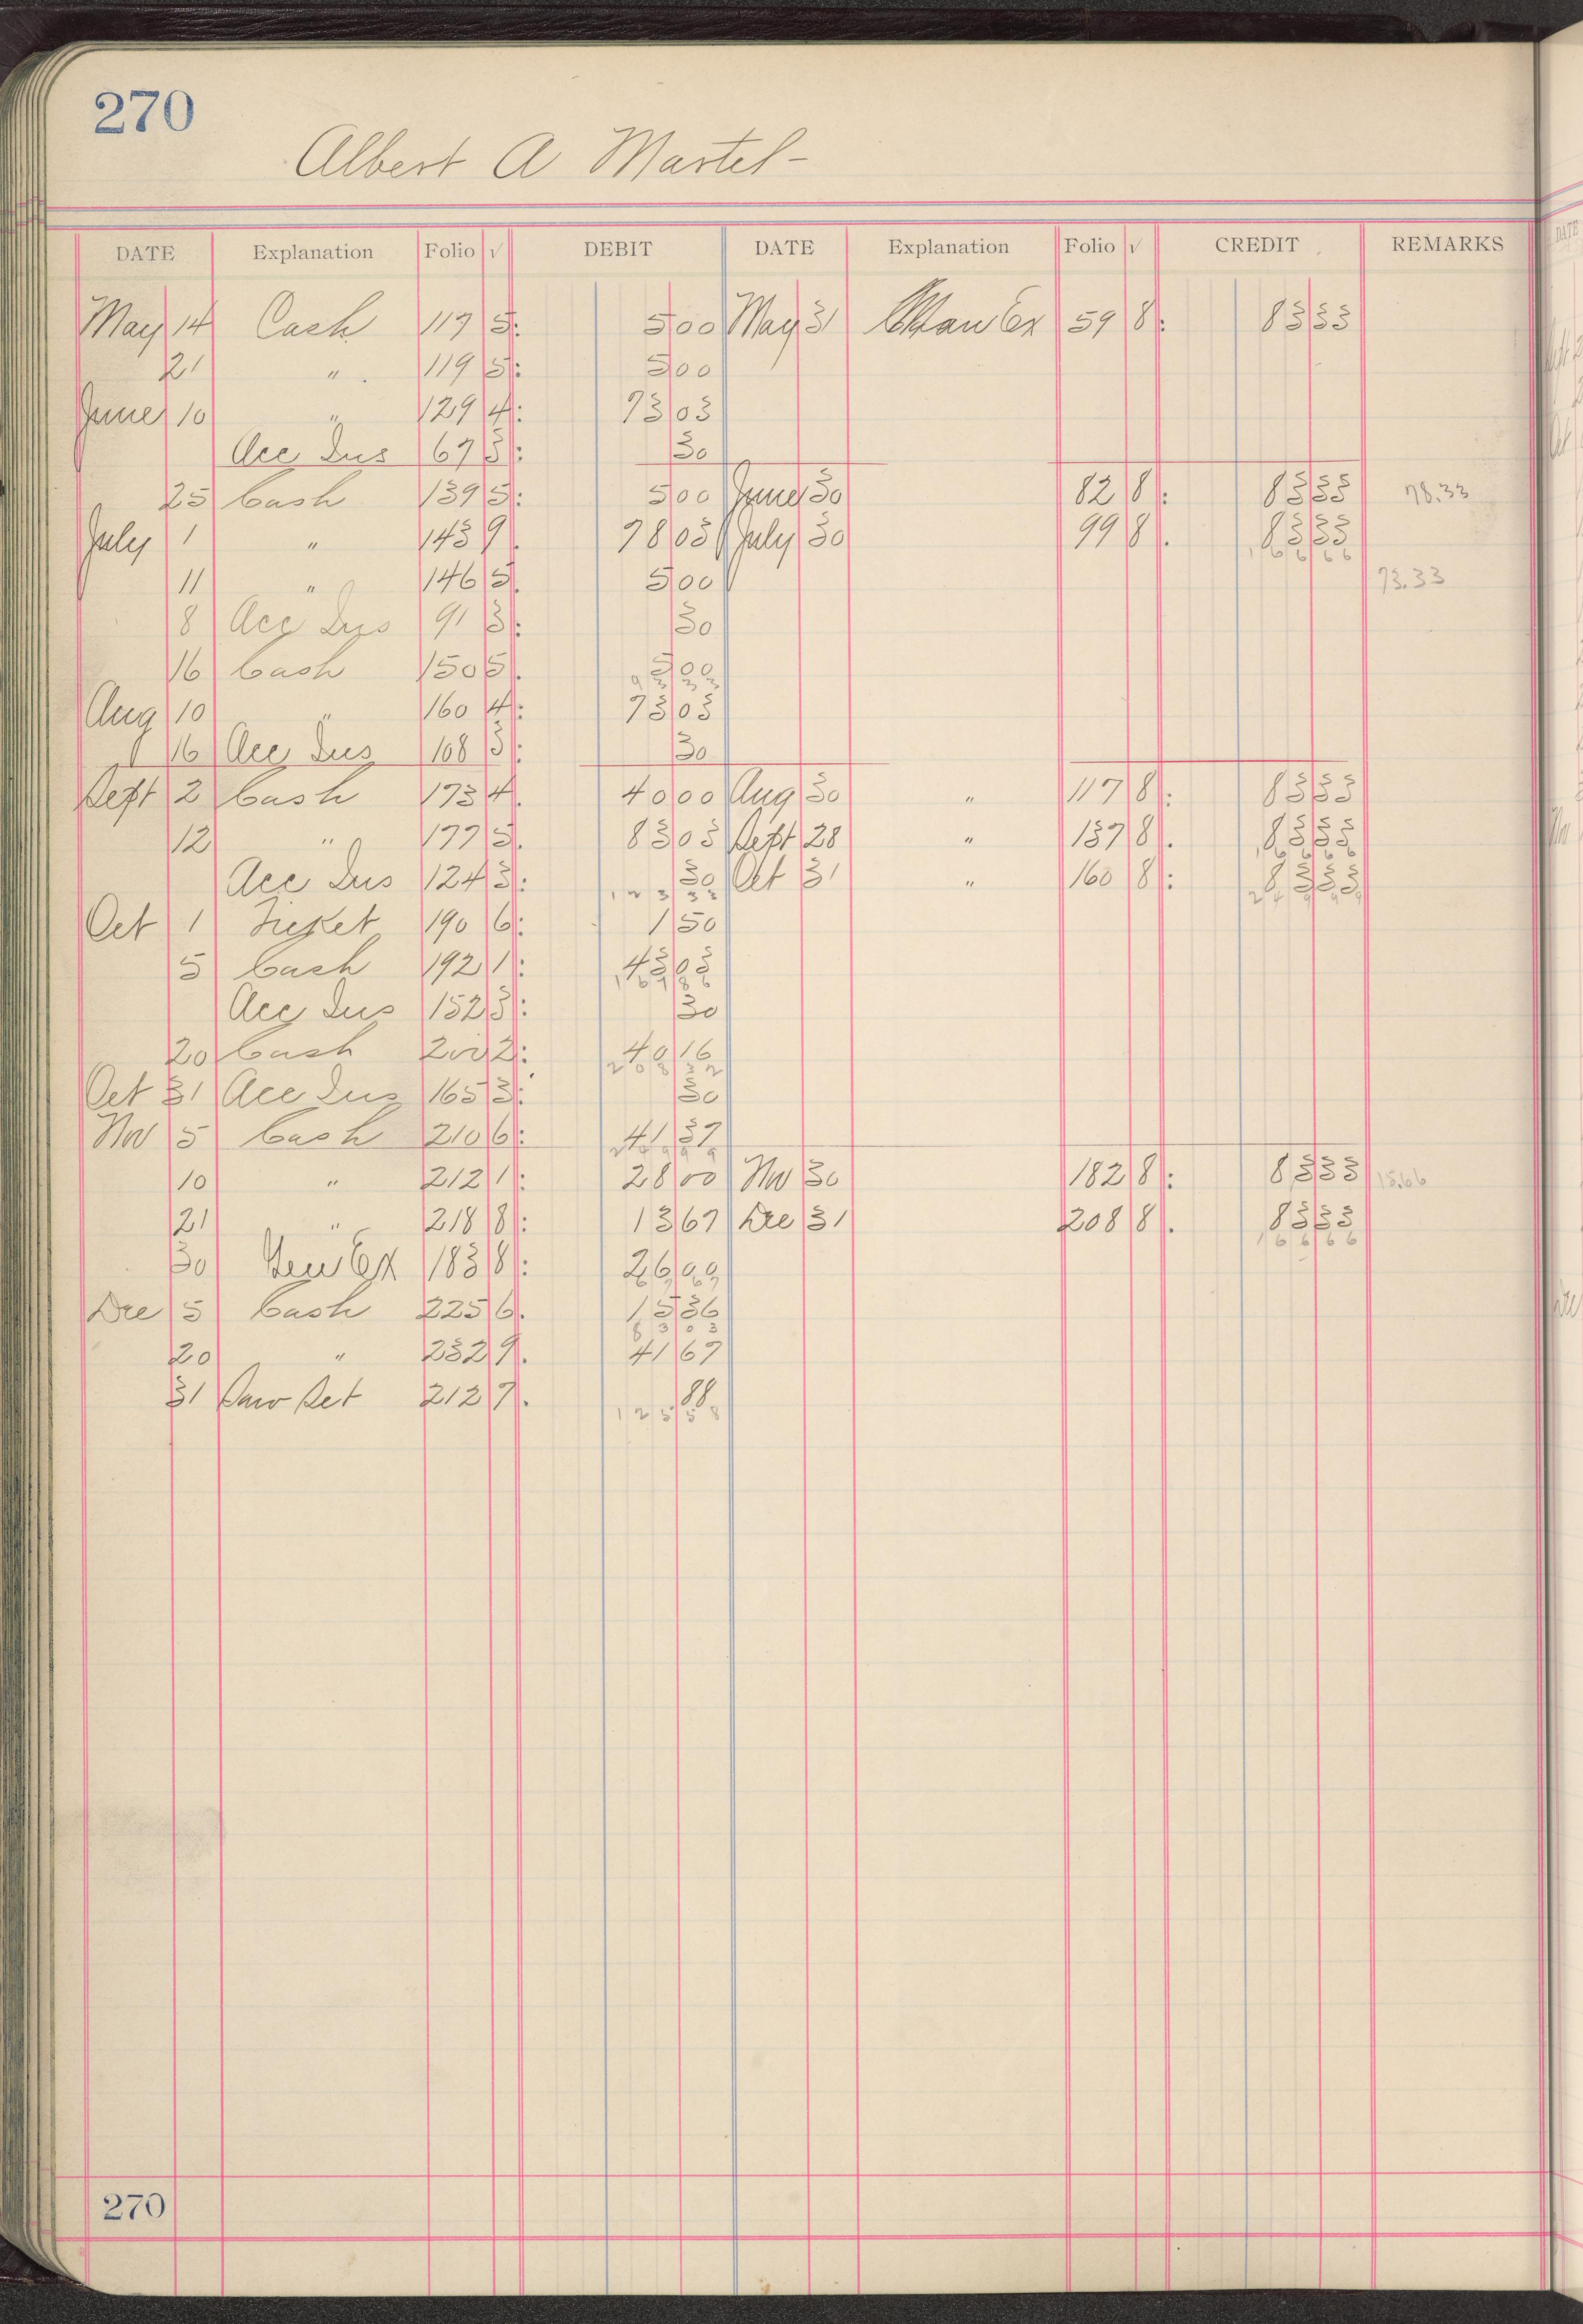 270
Albert A Martel-
DATE Explanation Folio √ DEBIT DATE Explanation Folio √ CREDIT REMARKS
May 14 Cash 117 5: 5 00 May 31 Man Ex 59 8: 83 33
21 " 119 5: 5 00
June 10 " 129 4: 73 03
Acc Ins 67 3: 30
25 Cash 139 5: 5 00 June 30 82 8: 83 33 78.33
July 1 " 143 9. 78 03 July 30 99 8. 83 33
166 66
11 " 146 5. 5 00 73.33
8 Acc Ins 91 3: 30
16 Cash 150 5. 5 00
93 33
Aug 10 " 160 4: 73 03
16 Acc Ins 108 3: 30
Sept 2 Cash 173 4. 40 00 Aug 30 " 117 8: 83 33
12 " 177 5. 83 03 Sept 28 " 137 8. 83 33
166 66
Acc Ins 124 3: 30 Oct 31 " 160 8: 83 33
123 33 249 99
Oct 1 Ticket 190 6: 1 50
5 Cash 192 1: 43 03
167 86
Acc Ins 152 3: 30
20 Cash 200 2: 40 16
208 32
Oct 31 Acc Ins 165 3: 30
Nov 5 Cash 210 6: 41 37
249 99
10 " 212 1: 28 00 Nov 30 182 8: 83 33 15.66
21 " 218 8: 13 67 Dec 31 208 8. 83 33
166 66
30 Gen Ex 183 8: 26 00
67 67
Dec 5 Cash 225 6. 15 36
83 03
20 " 232 9. 41 67
31 Saw Set 212 7. 88
125 58
270